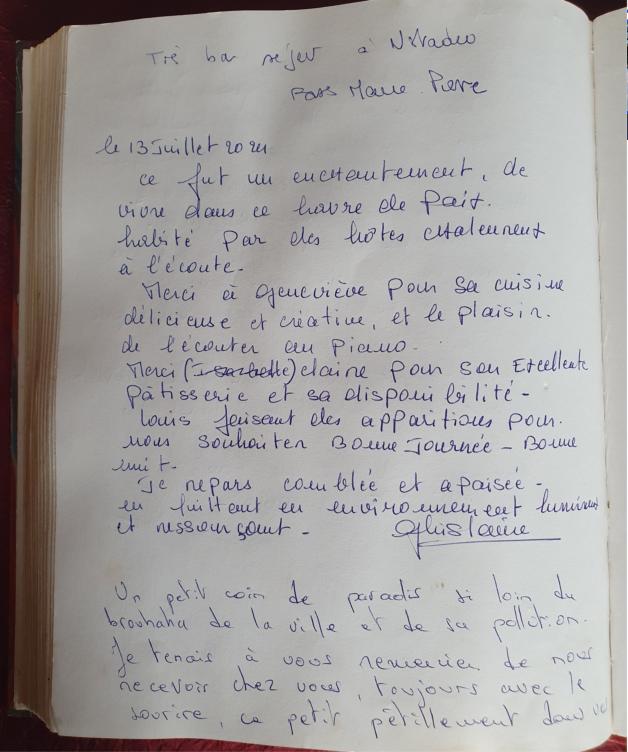 Trè bon séjour à
Marie Pierre
le 13 Juillet 2021
ce fut un enchantement, de
vivre dans ce havre de Pait.
habité par des hôtes chaleureux
à l'écoute.
Merci à Geneviève pour sa cuisine
délicieuse et créative, et le plaisir.
de l'écouter au Piano.
Merci (Isabelle) claire pour son Excellente
pâtisserie et sa disponibilité -
Louis faisant des apparitions pour.
nous souhaiter Bonne Journée - Bonne
nuit.
Je repars comblée et apaisée -
en en environnement lumineux
et ressourçant - Ghislaine
Un petit coin de paradis si loin du
brouhaha de la ville et de sa pollution.
Je tenais à vous remercier de nous
recevoir chez vous, toujours avec le
sourire, ce petit pétillement dans vos